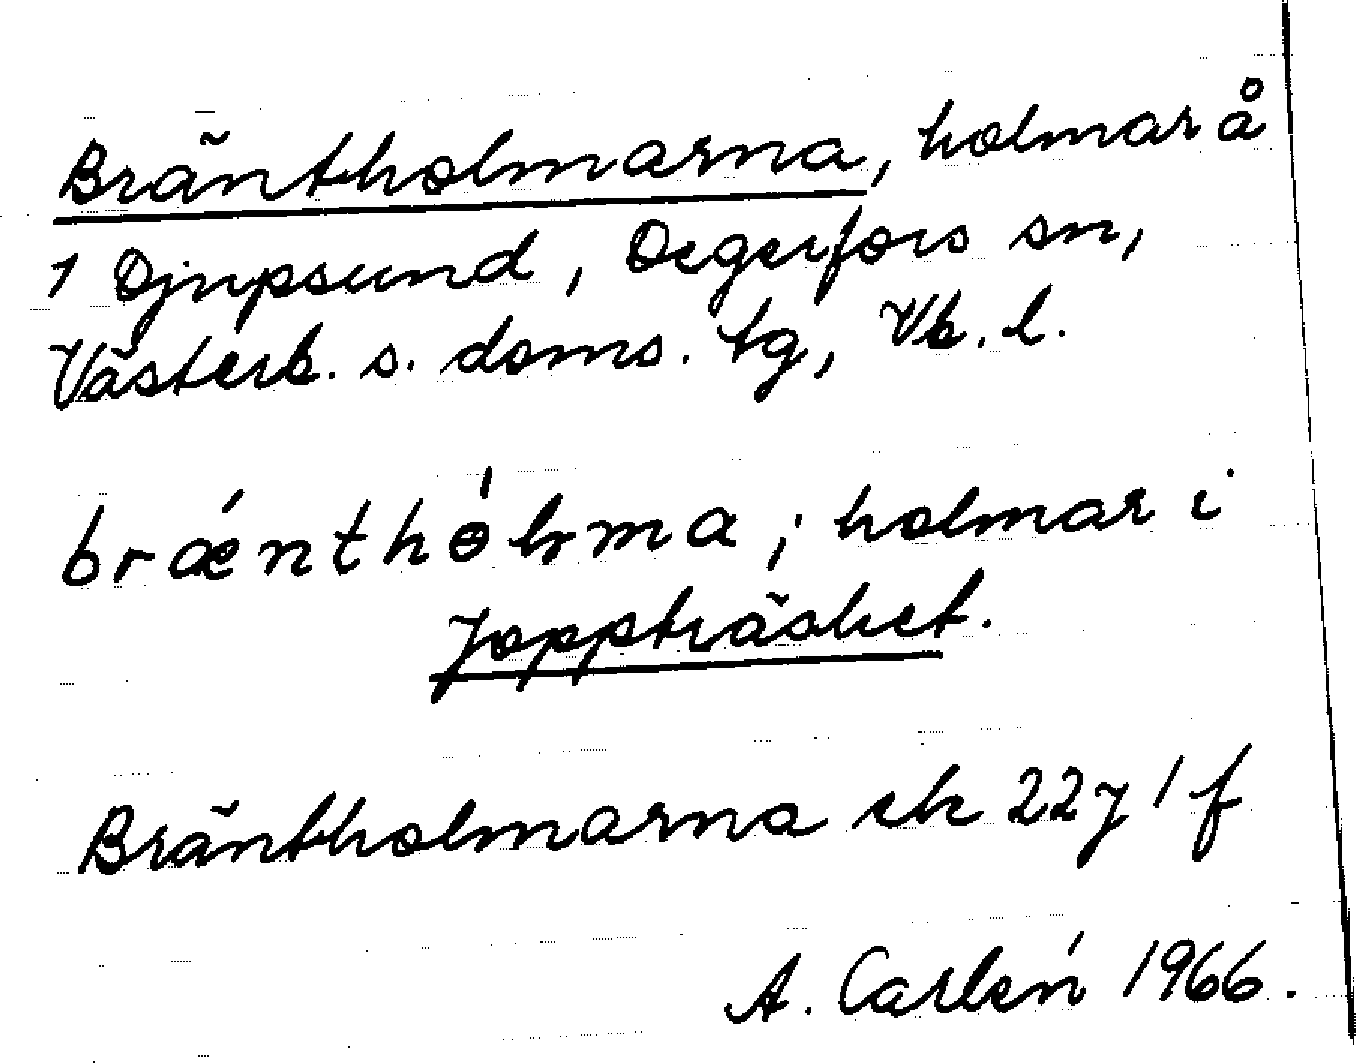 Bräntholmarna, holmar å
1 Djupsund, Degerfors sn,
Västerb. s. doms. tg, Vb. l.
brænthɵ́lma; holmar i
Joppträsket.
Bräntholmarna ek 22 J 1 f
A. Carlén 1966.